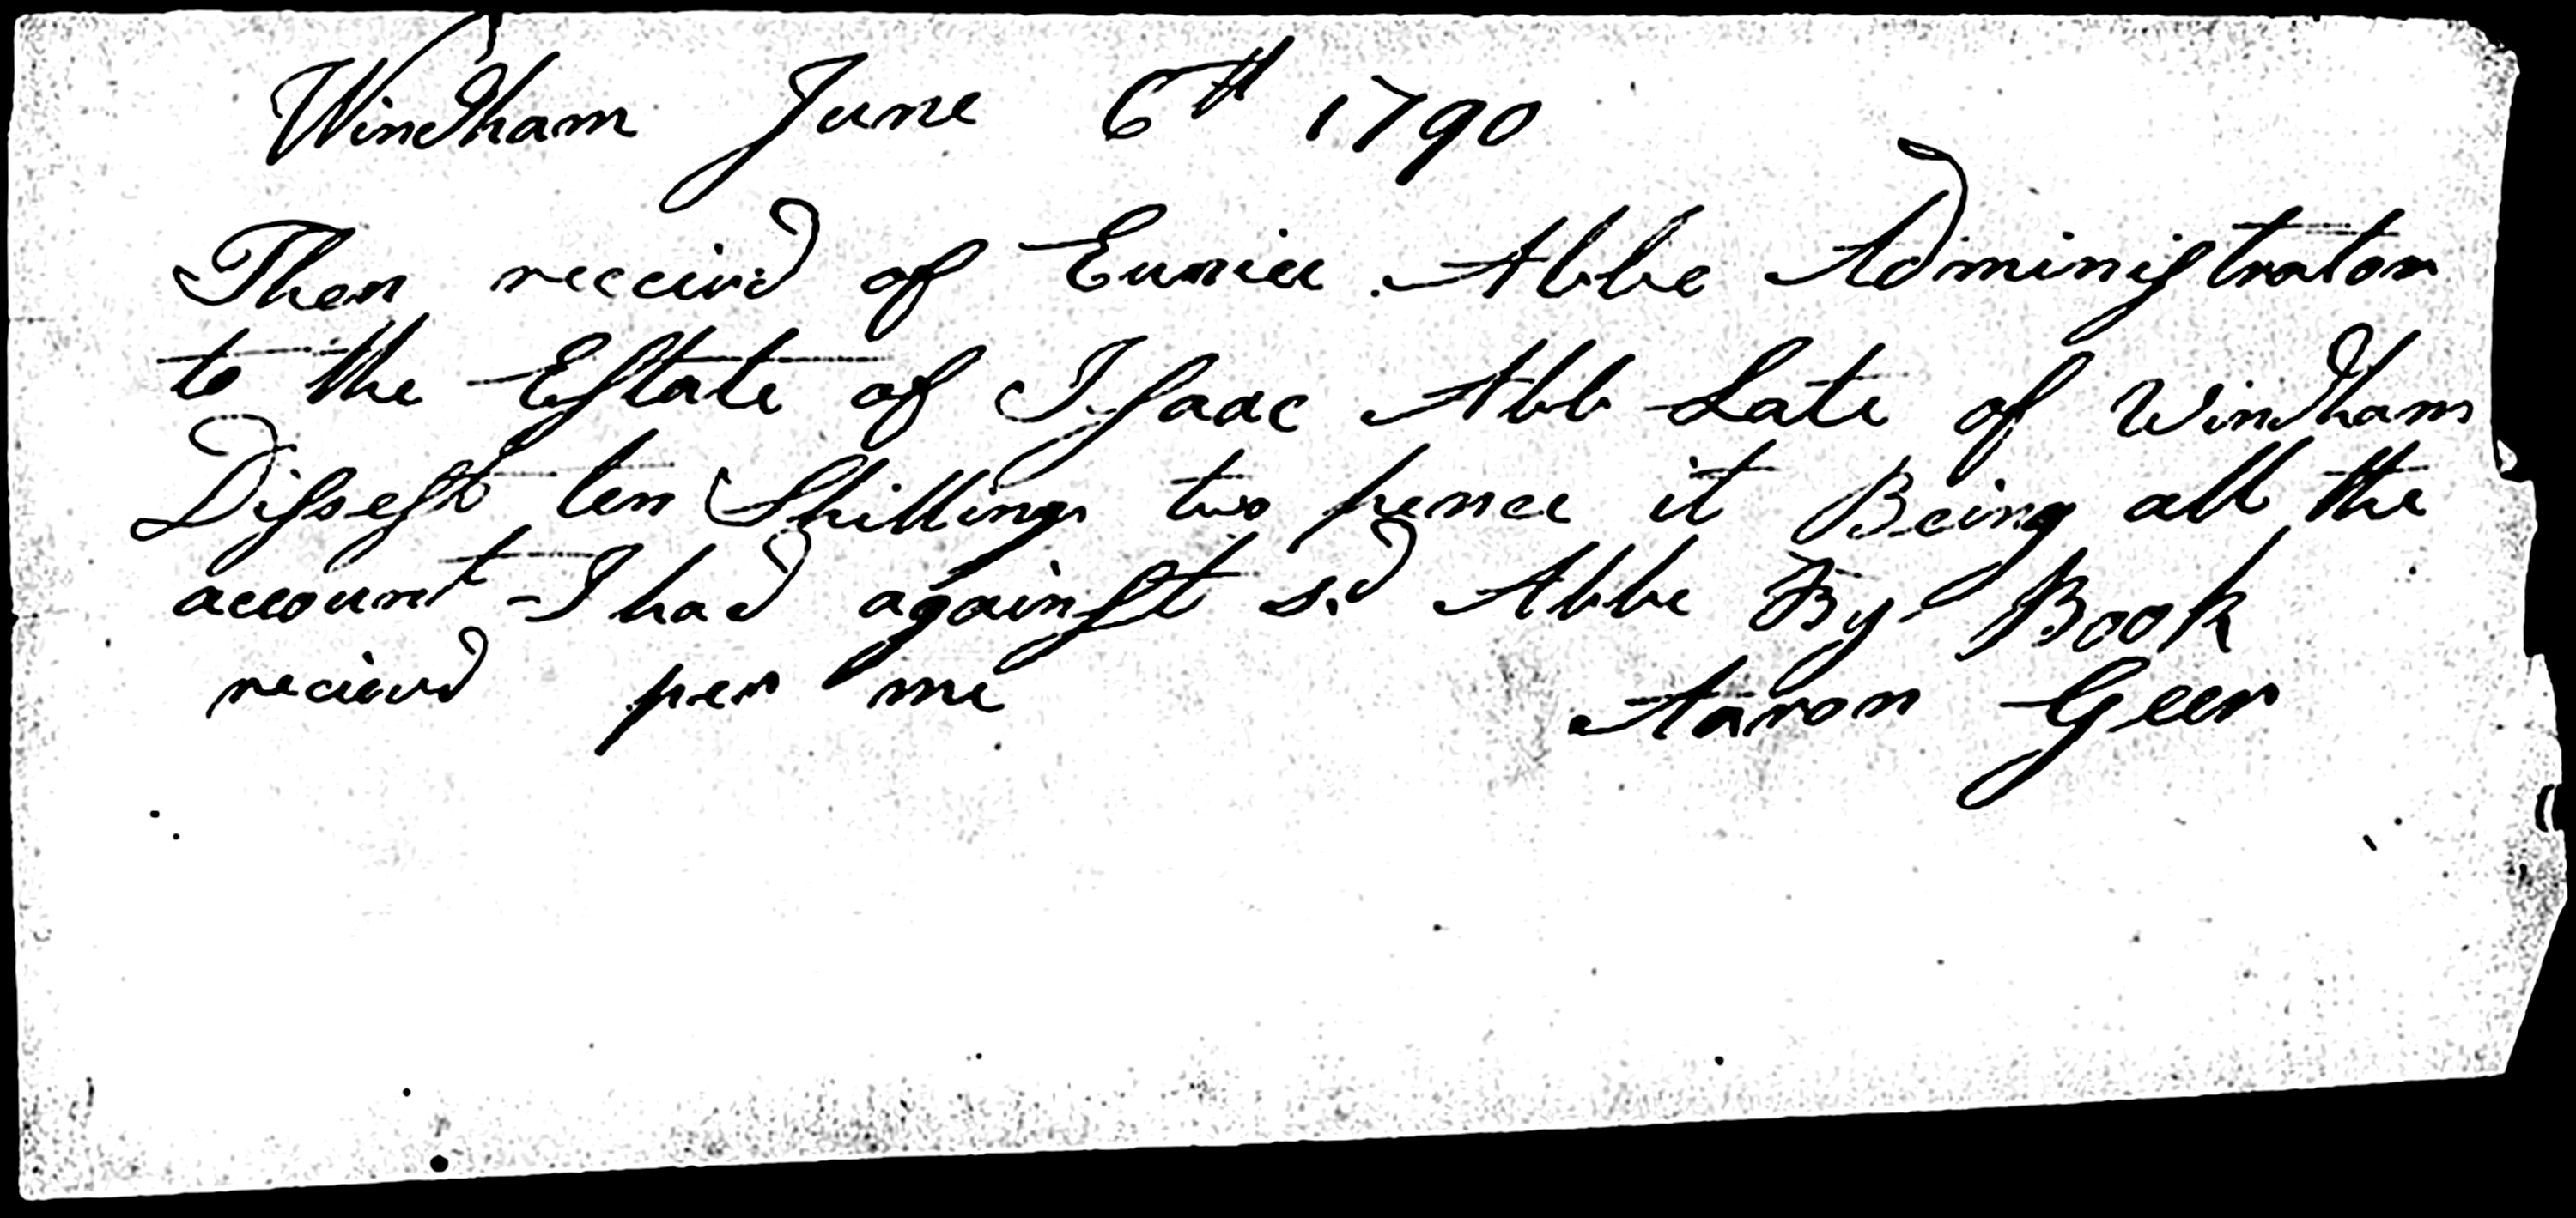 Windham June 6th 1790
Then receivd of Eunice Abbe Adminiſtrator
to the Eſtate of Iſaac Abb Late of Windham
Diſseſt ten Shillings two pence it Being all the
account I had againſt sd Abbe By Book
recievd per me Aaron Geer